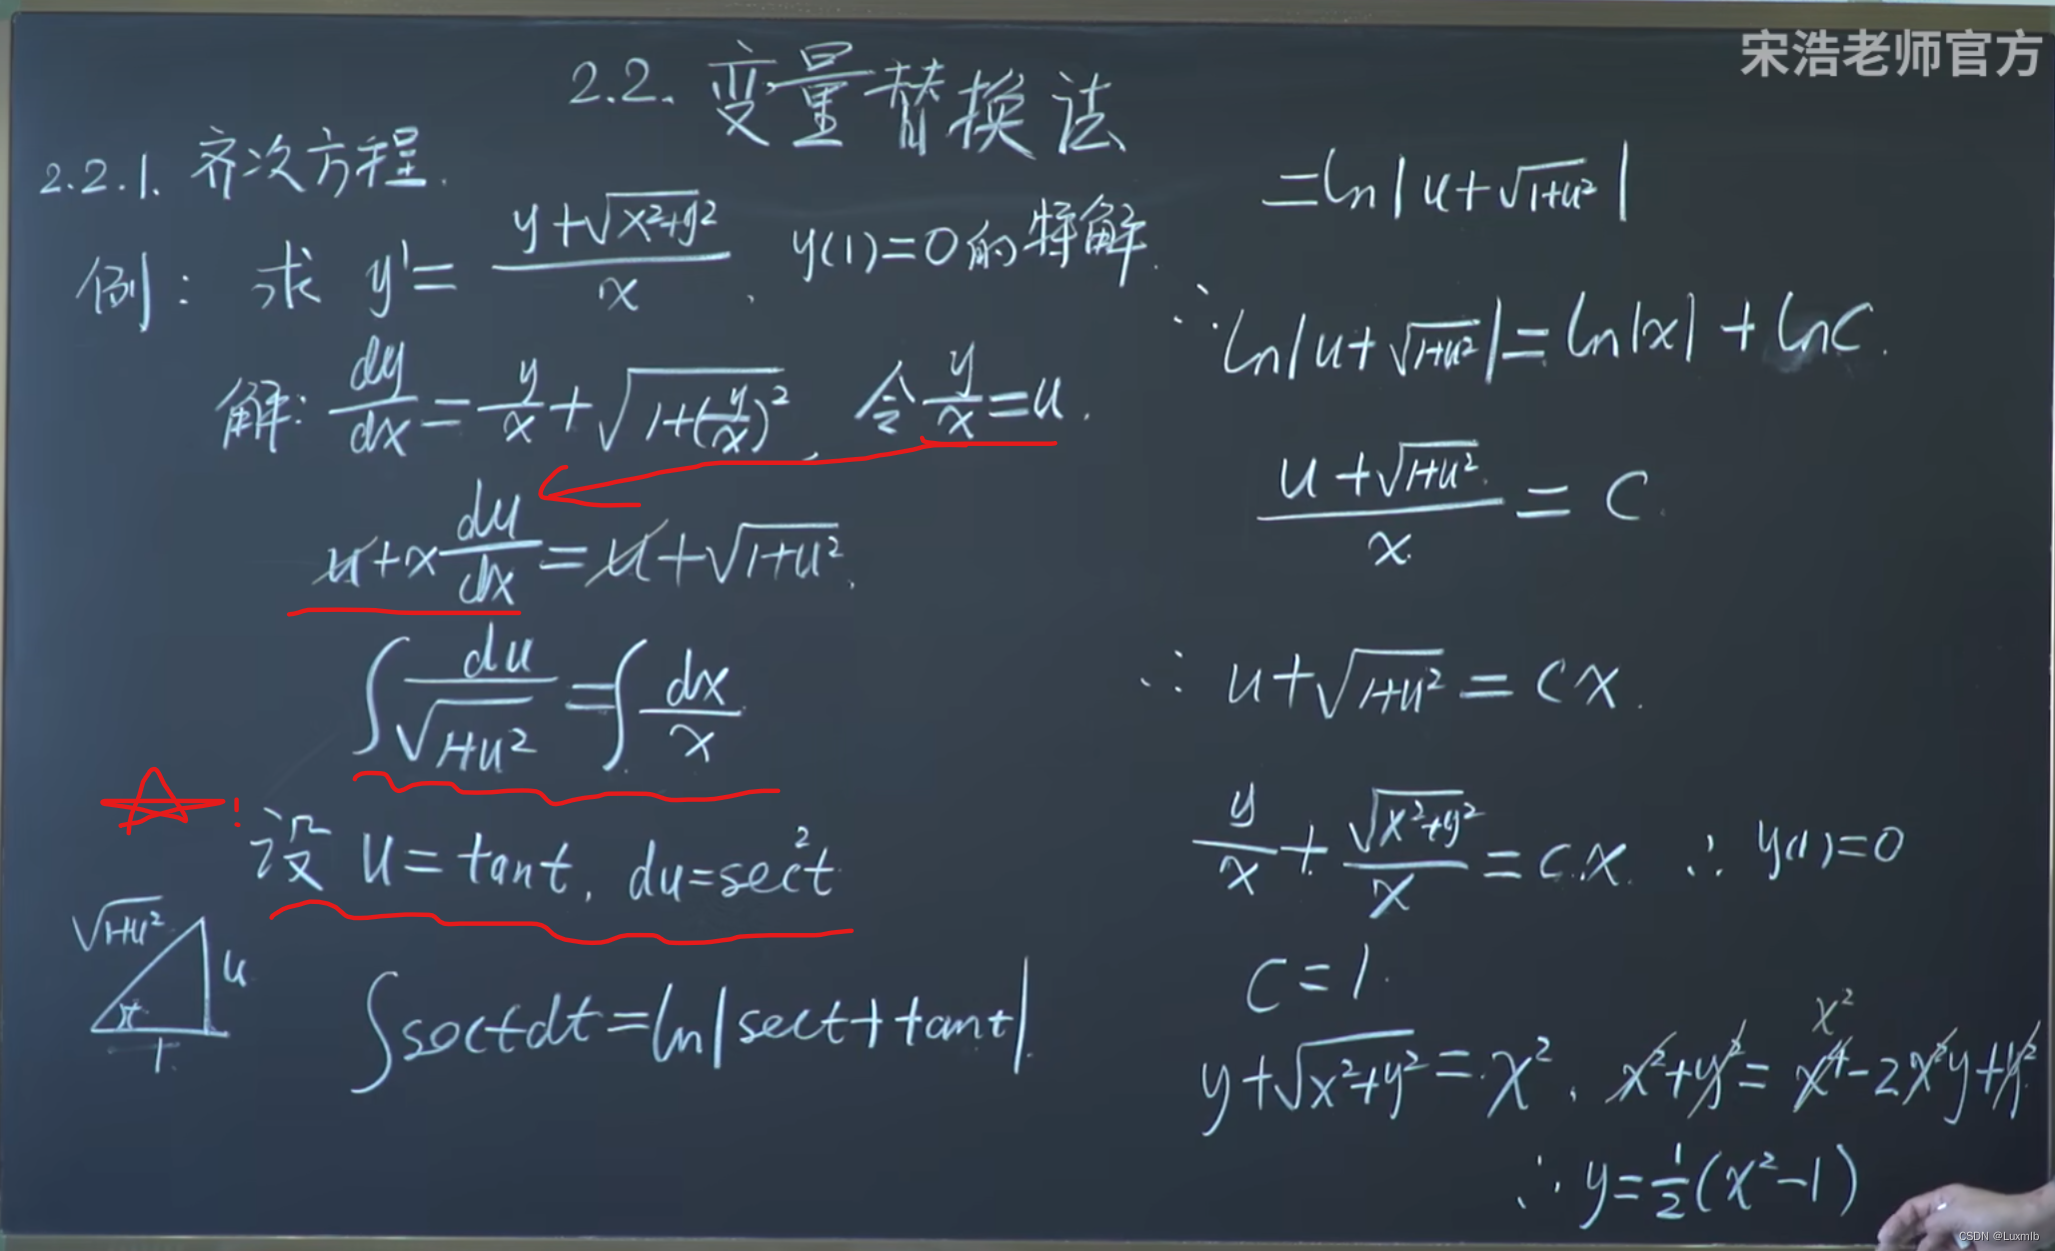 宋浩老师官方
2.2. 变量替换法
2.2.1. 齐次方程.
例: 求 y' = (y+√(x²+y²))/x , y(1)=0的特解.
解: dy/dx = y/x + √(1+(y/x)²), 令 y/x = u.
u + x du/dx = u + √(1+u²).
∫ du/√(1+u²) = ∫ dx/x
!
设 u = tant, du=sec²t
√(1+u²)
u
t
1.
∫ sectdt = ln|sect+tant|.
= ln|u+√(1+u²)|
∴ ln|u+√(1+u²)| = ln|x| + lnC.
(u+√(1+u²))/x = C.
∴ u+√(1+u²) = Cx.
y/x + √(x²+y²)/x = Cx. ∴ y(1)=0
C=1.
x²
y+√(x²+y²) = x², x²+y² = x⁴-2x²y+y²
∴ y=½(x²-1)
CSDN @Luxmlb